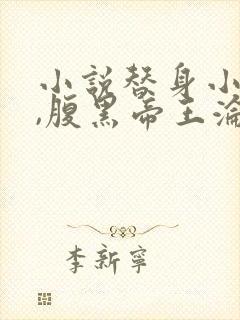 小説替身小
,腹黑帝王淪
李新寧